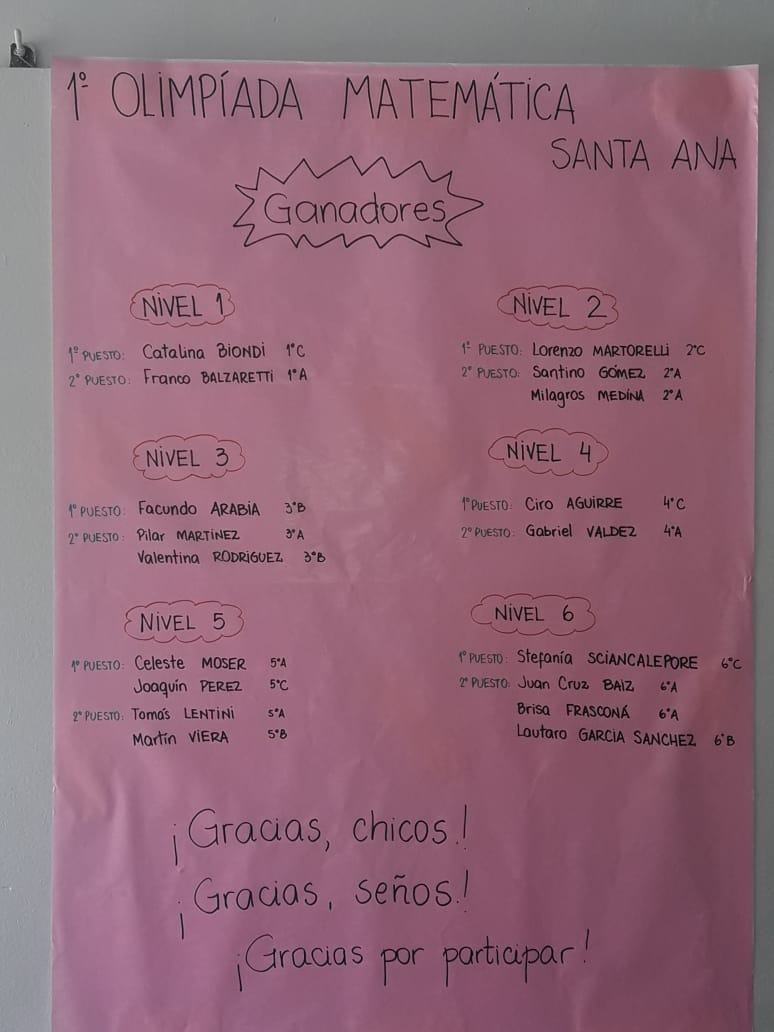 1º OLIMPÍADA MATEMÁTICA
SANTA ANA
Ganadores
NIVEL 1
1º PUESTO: Catalina BIONDI 1°C
2° PUESTO: Franco BALZARETTI 1°A
NIVEL 2
1º PUESTO: Lorenzo MARTORELLI 2°C
2° PUESTO: Santino GÓMEZ 2°A
Milagros MEDINA 2°A
NIVEL 3
1º PUESTO: Facundo ARABIA 3°B
2° PUESTO: Pilar MARTÍNEZ 3°A
Valentina RODRIGUEZ 3°B
NIVEL 4
1º PUESTO: Ciro AGUIRRE 4°C
2º PUESTO: Gabriel VALDEZ 4°A
NIVEL 5
1º PUESTO: Celeste MOSER 5°A
Joaquín PEREZ 5°C
2° PUESTO: Tomás LENTINI 5°A
Martín VIERA 5°B
NIVEL 6
1º PUESTO: Stefanía SCIANCALEPORE 6°C
2º PUESTO: Juan Cruz BAIZ 6°A
Brisa FRASCONÁ 6°A
Lautaro GARCIA SANCHEZ 6°B
¡Gracias, chicos!
¡Gracias, seños!
¡Gracias por participar!